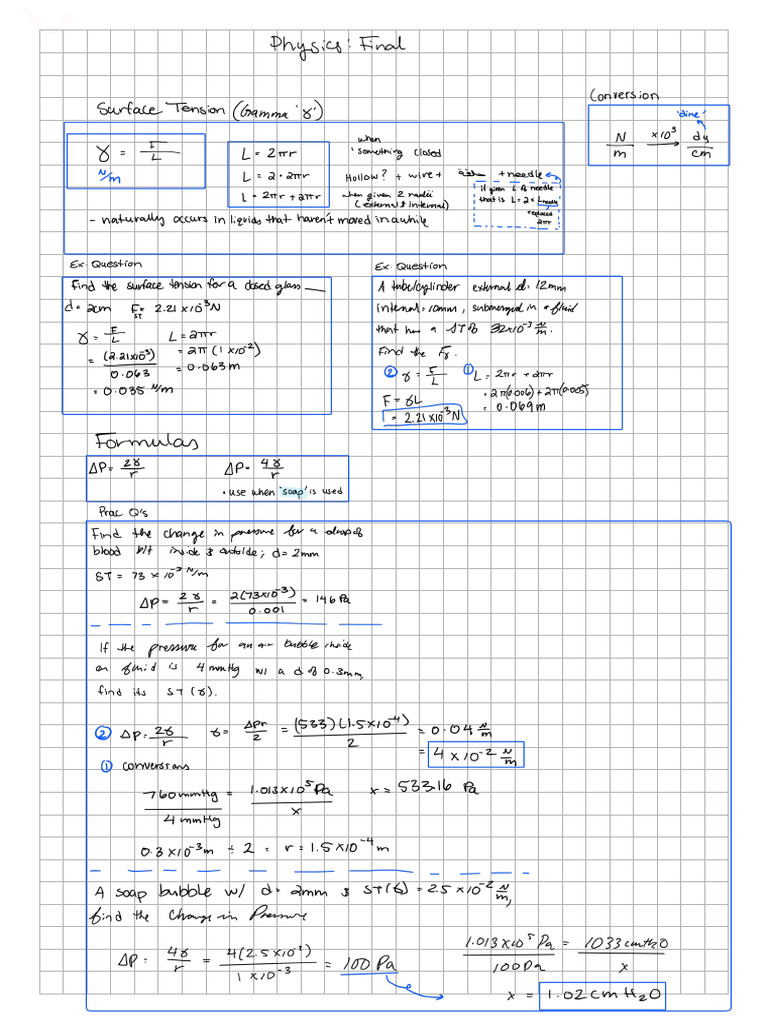 Physics: Final
Conversion
'dine'
N/m ×10³ → dy/cm
Surface Tension (Gamma 'γ')
γ = F/L
N/m
L = 2πr
L = 2 · 2πr
L = 2πr + 2πr
when
something closed
Hollow? + wire + + needle
when given 2 radii
(external & internal)
if given L of needle
that is L = 2 × Lneedle
replaced
2πr
- naturally occurs in liquids that haven't moved in awhile
Ex. Question
Find the surface tension for a closed glass
d = 2cm FST = 2.21 × 10⁻³ N
γ = F/L L = 2πr
= (2.21×10⁻³)/0.063 = 2π (1 × 10⁻²)
= 0.035 N/m = 0.063 m
Ex. Question
A tube/cylinder external d = 12mm
internal = 10mm, submerged in a fluid
that has a ST of 32×10⁻³ N/m.
Find the Fγ.
② γ = F/L ① L = 2πr + 2πr
F = γL = 2π(0.006) + 2π(0.005)
= 2.21×10⁻³ N = 0.069 m
Formulas
ΔP = 2γ/r ΔP = 4γ/r
• use when 'soap' is used
Prac Q's
Find the change in pressure for a drop of
blood b/t inside & outside; d = 2mm
ST = 73 × 10⁻³ N/m
ΔP = 2γ/r = 2(73×10⁻³)/0.001 = 146 Pa
If the pressure for an air bubble inside
an fluid is 4 mmHg w/ a d of 0.3mm,
find its ST (γ).
② ΔP = 2γ/r γ = ΔPr/2 = (533)(1.5×10⁻⁴)/2 = 0.04 N/m
= 4 × 10⁻² N/m
① conversions
760 mmHg/4 mmHg = 1.013 × 10⁵ Pa/x x = 533.16 Pa
0.3 × 10⁻³ m ÷ 2 = r = 1.5 × 10⁻⁴ m
A soap bubble w/ d = 2mm & ST(γ) = 2.5 × 10⁻² N/m,
find the change in Pressure
ΔP = 4γ/r = 4(2.5 × 10⁻²)/1 × 10⁻³ = 100 Pa
1.013×10⁵ Pa/100 Pa = 1033 cmH2O/x
x = 1.02 cm H₂O